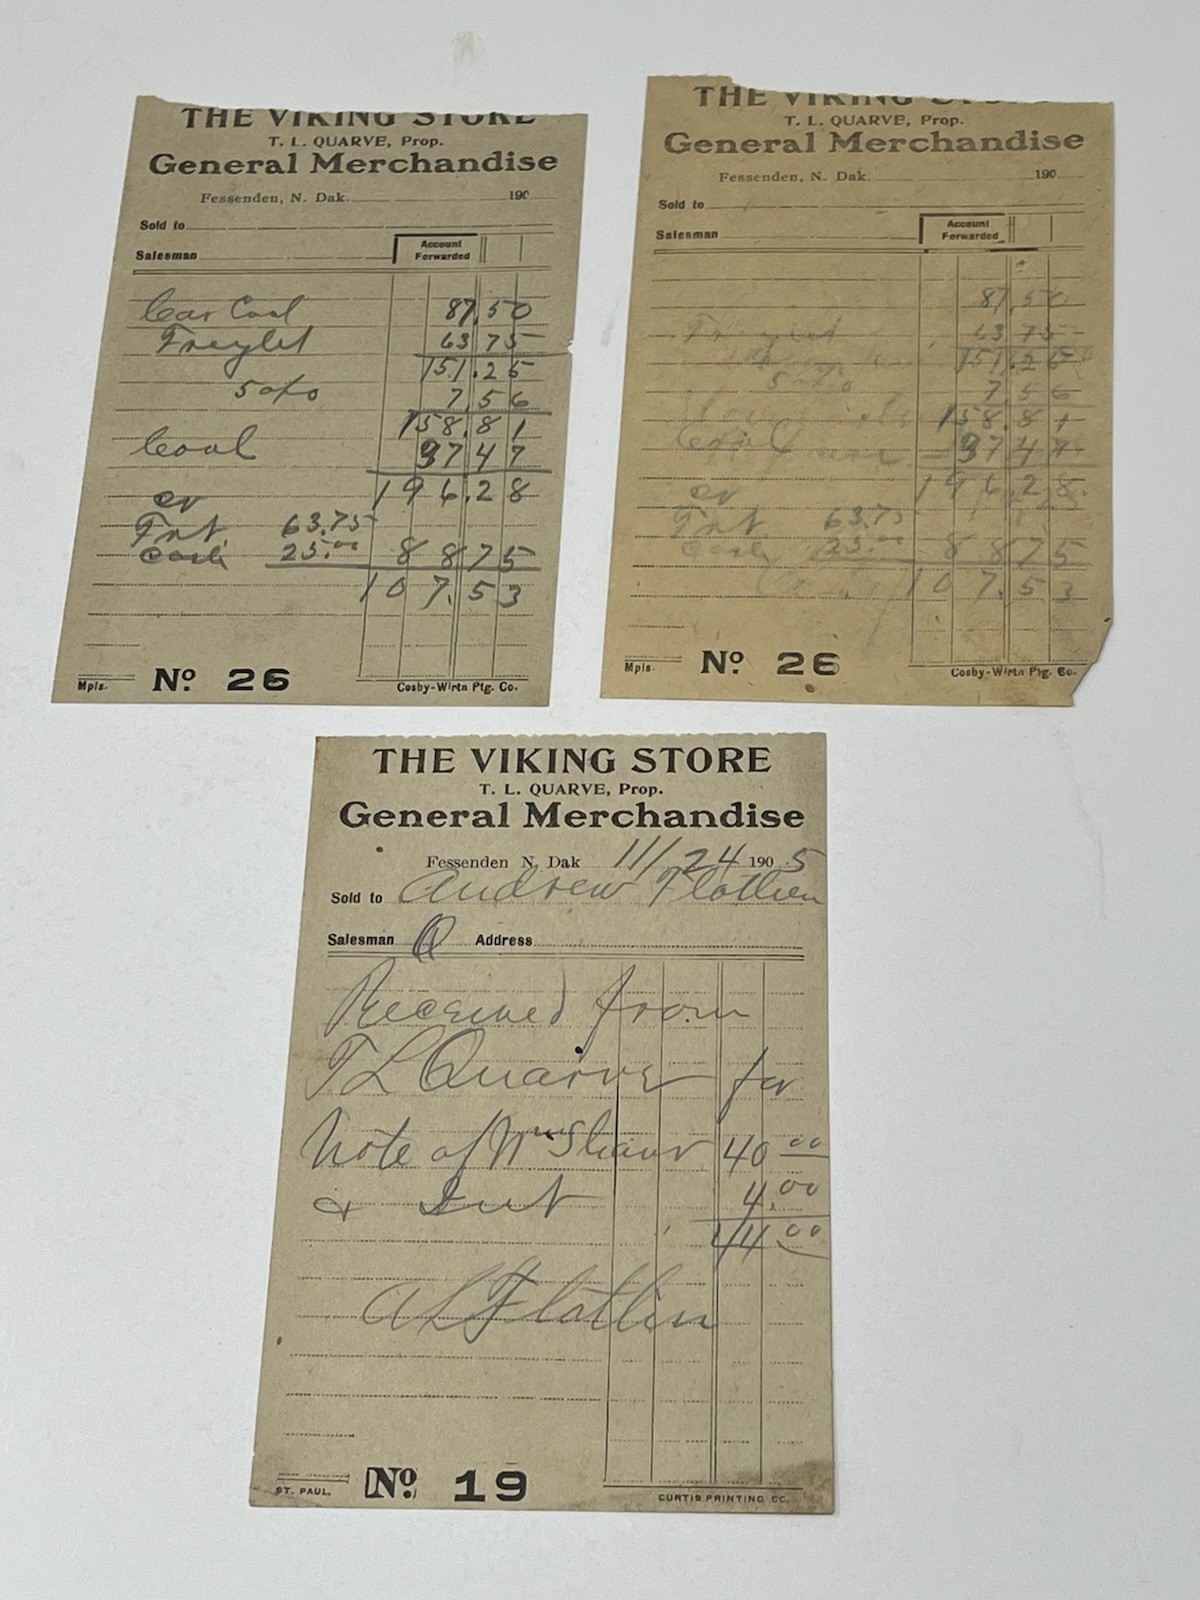 THE VIKING STORE
T. L. QUARVE, Prop.
General Merchandise
Fessenden, N. Dak. 190
Sold to
Salesman
Account Forwarded
Car Coal 87.50
Freight 63 75
151.25
5% 7.56
158.81
Coal 37 47
196.28
cr
Frt. 63.75
Cash 25.00 88 75
107.53
Mpls. No. 26 Cosby-Wirth Ptg. Co.
THE VIKING STORE
T. L. QUARVE, Prop.
General Merchandise
Fessenden, N. Dak. 190
Sold to
Salesman
Account Forwarded
87.50
Freight 63 75
151.25
5% 7.56
158.81
Coal 37 47
196.28
cr
Frt. 63.75
Cash 25.00 88 75
107.53
Mpls. No. 26 Cosby-Wirth Ptg. Co.
THE VIKING STORE
T. L. QUARVE, Prop.
General Merchandise
Fessenden N. Dak 11/24 1905
Sold to Andrew Flotlien
Salesman Q Address
Received from
T L Quarve for
Note of Wm 40 00
& Int 4.00
44 00
A L Flotlien
ST. PAUL. No. 19 CURTIS PRINTING CO.